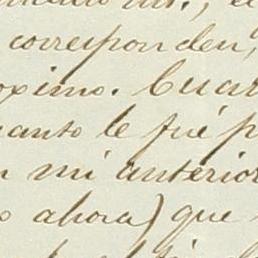 corresponden,
oximo. Cuan
uanto le fué p
n mi anterior
o ahora) que